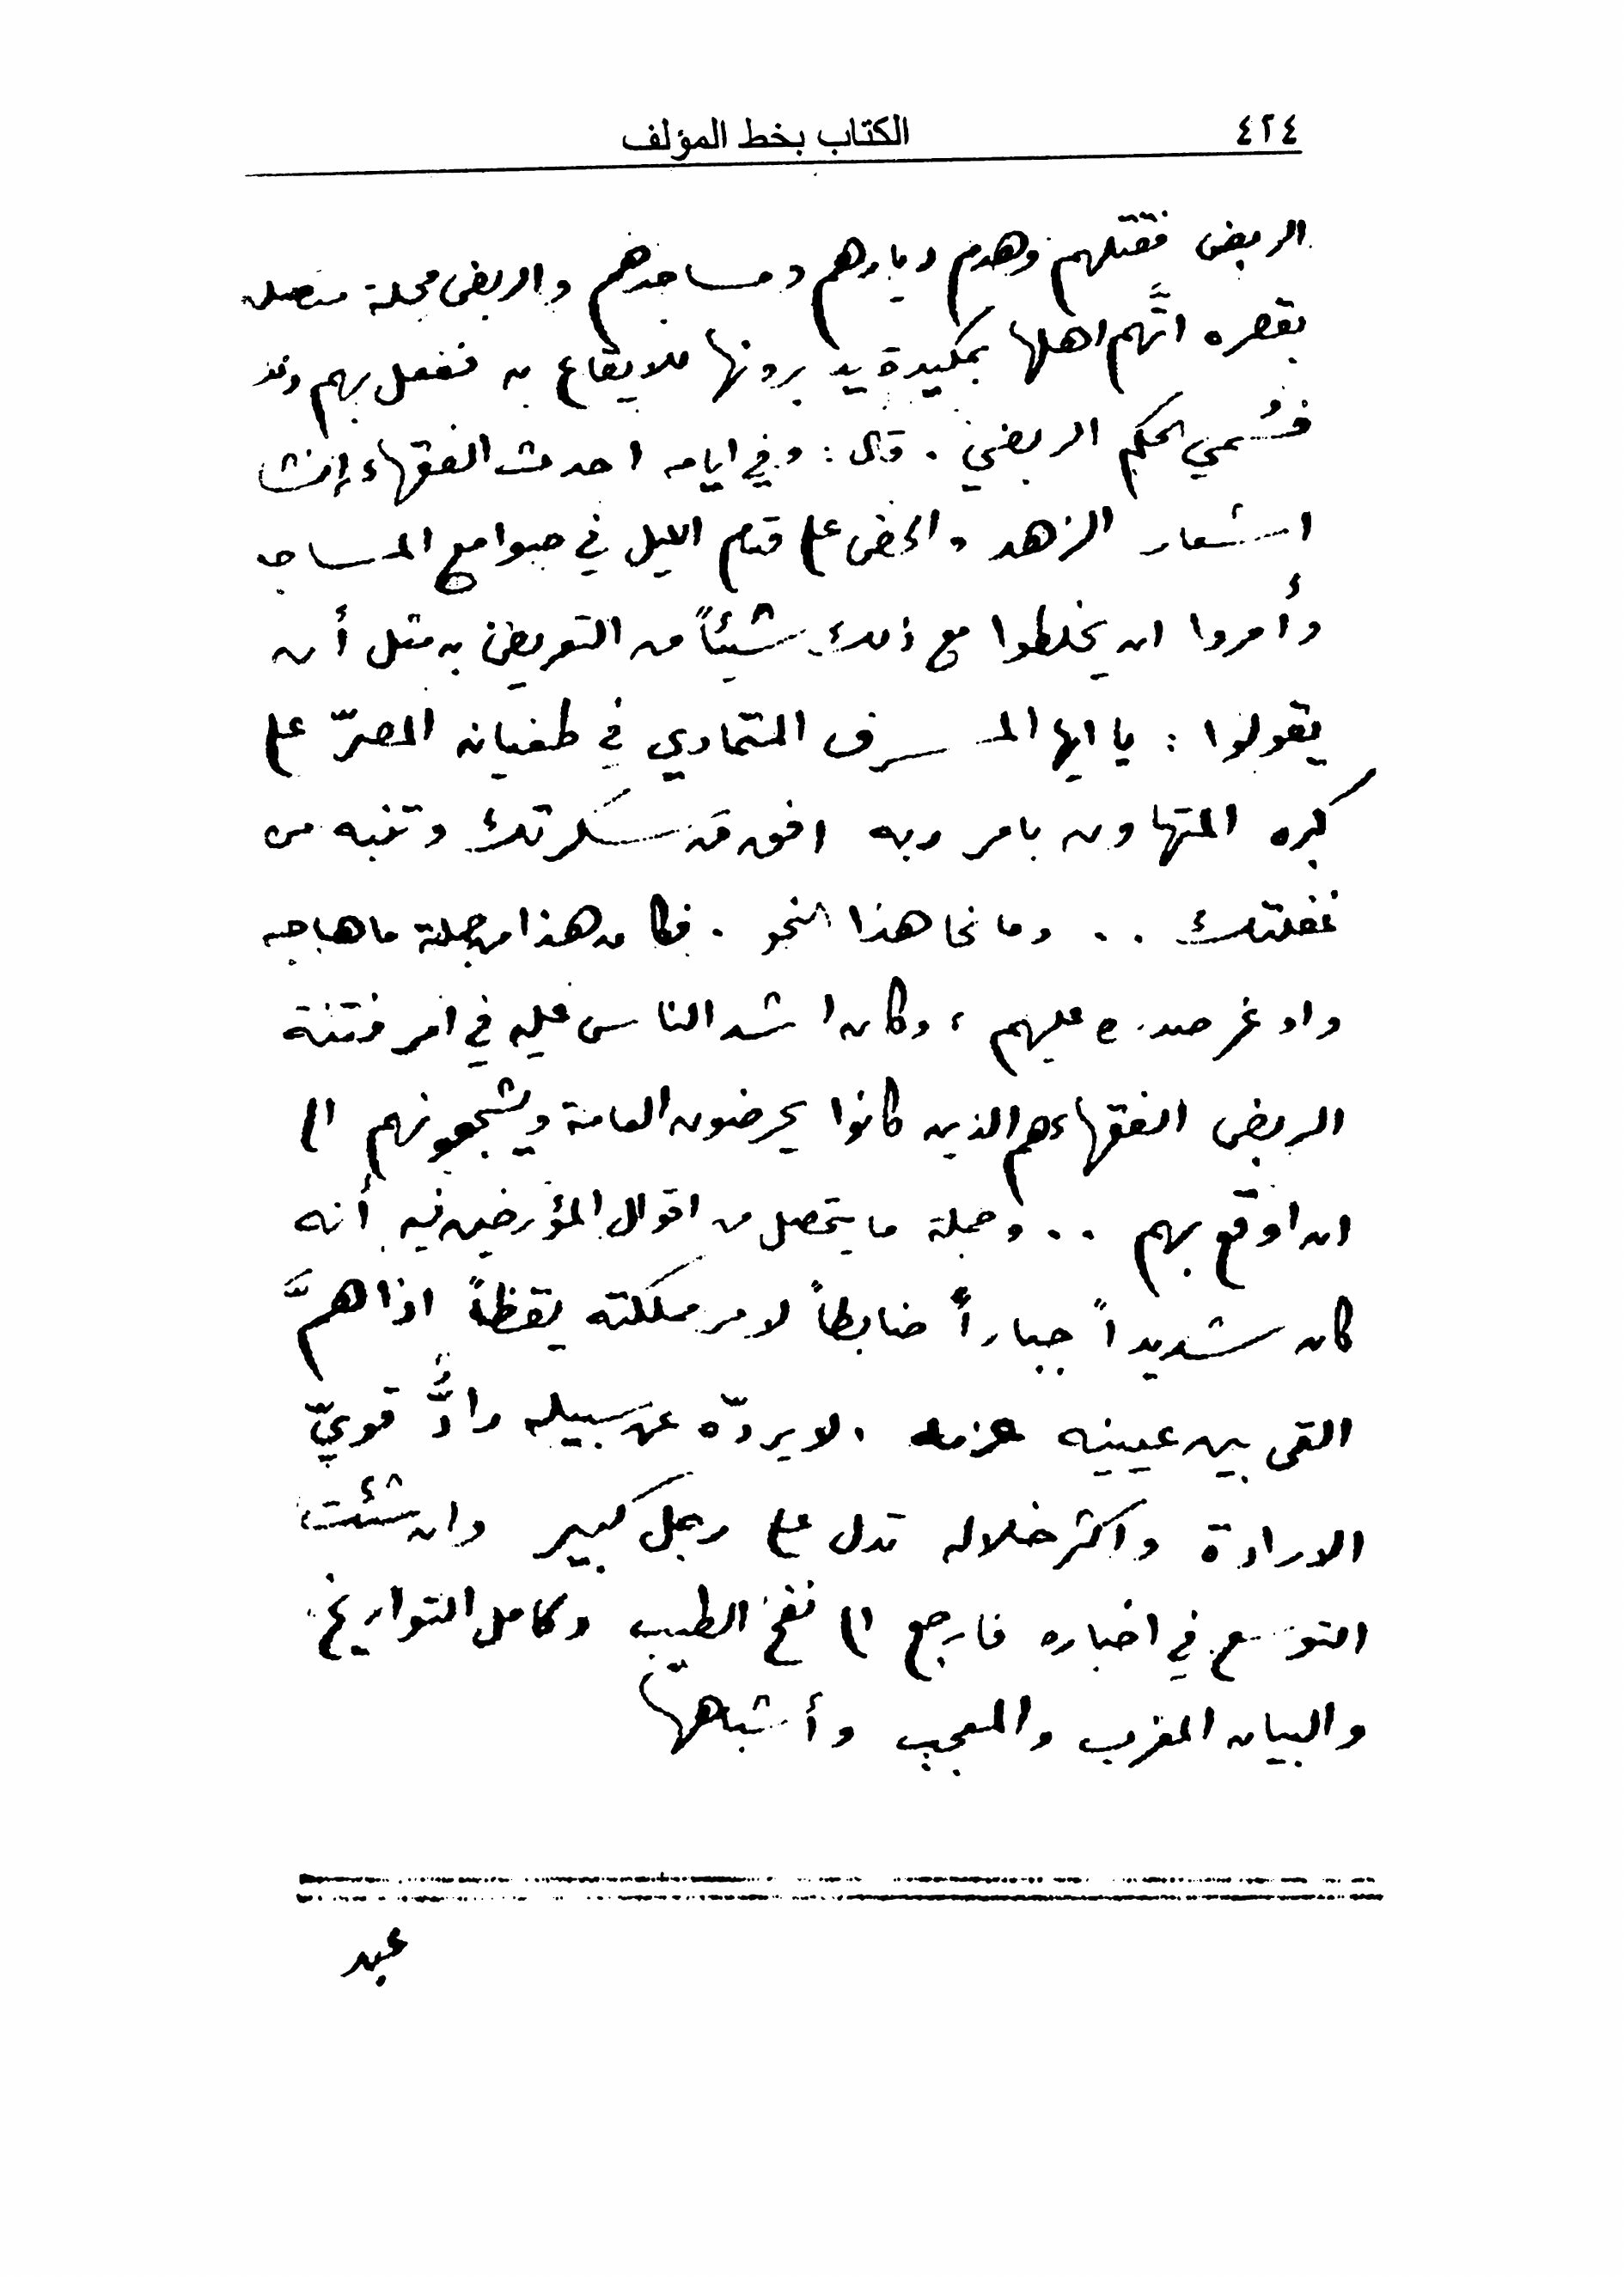 ٤٢٤
الكتاب بخط المؤلف
الربض فقتلهم وهدم ديارهم ومساجدهم والربض محلة متصلة
بقصره اتَّهم اهلها بمكيدة يدبرونها للايقاع به ففعل بهم
فسُمي الحكم الربضي . قال : وفي ايامه احدث الفقهاء إنشا
اشعار الزهد والحض على قيام الليل في صوامع المساجد
وأمروا ان يخلطوا مع ذلك شيئاً من التعريض به مثل أن
يقولوا : يا ايها المسرف المتمادي في طغيانه المصرّ على
كبره المتهاون بامر ربه افق من سكرتك وتنبه من
غفلتك . . وما نحا هذا النحو . فكان هذا من جملة ما هاجه
واوغر صدره عليهم ، وكان اشد الناس عليه في امر فتنة
الربض الفقهاء هم الذين كانوا يحرضون العامة ويشجعونهم الى
ان اوقع بهم . . وجملة ما يتحصل من اقوال المؤرخين فيه أنه
كان شديداً جباراً ضابطاً لامر مملكته يقظاً اذا همَّ
القى بين عينيه عزمه . لا يردّه عن سبيله رادٌّ قويّ
الارادة واكثر خلاله تدل على رجل كبير وان شئت
التوسع في اخباره فارجع الى نفح الطيب وكامل التواريخ
والبيان المغرب والمعجب وأشباهها
عبد